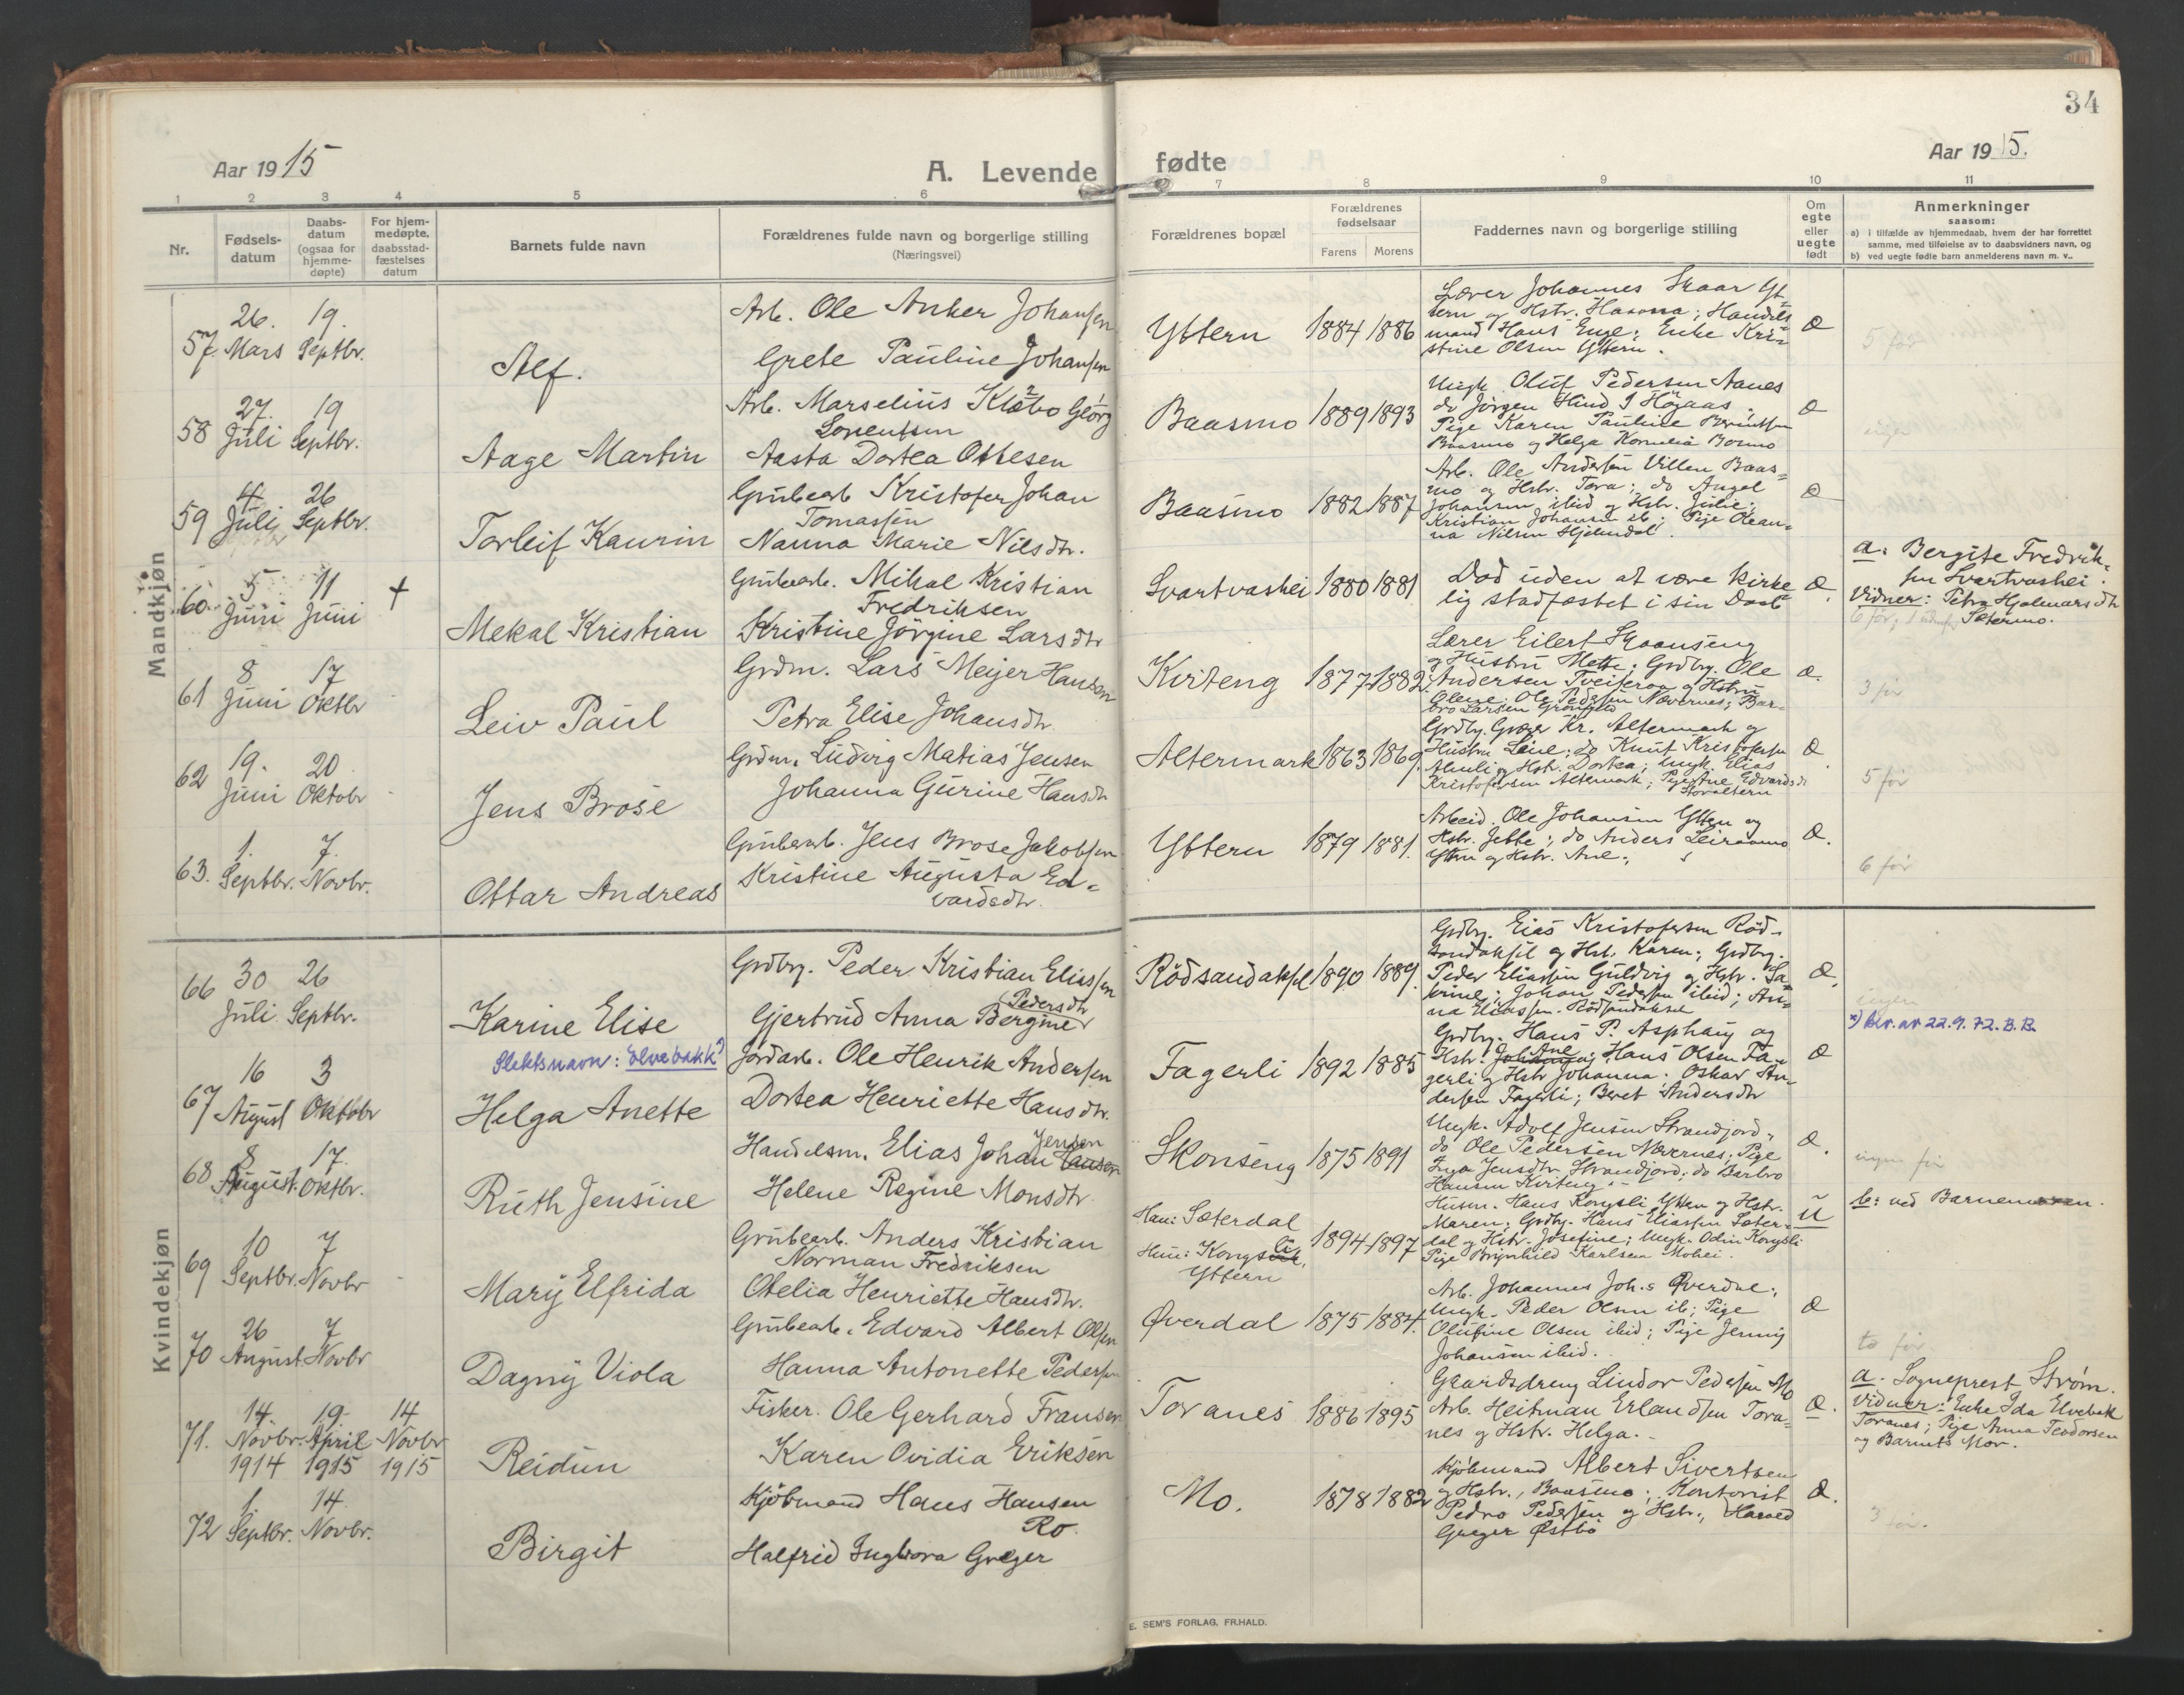 34
Aar 1915
A. Levende
fødte
Aar 1915.
1 2 3 4 5 6 7 8 9 10 11
Nr.
Fødsels-
datum
Daabs-
datum
(ogsaa for
hjemme-
døpte)
For hjem-
medøpte,
daabsstad-
fæstelses
datum
Barnets fulde navn
Forældrenes fulde navn og borgerlige stilling
(Næringsvei)
Forældrenes bopæl
Forældrenes
fødselsaar
Farens Morens
Faddernes navn og borgerlige stilling
Om
egte
eller
uegte
født
Anmerkninger
saasom:
a) i tilfælde av hjemmedaab, hvem der har forrettet
samme, med tilføielse av to daabsvidners navn, og
b) ved uegte fødte barn anmelderens navn m. v..
Mandkjøn
57. 26. Mars 19. Septbr.
Alf.
Arb. Ole Anker Johansen
Grete Pauline Johansen
Yttern 1884 1886
Lærer Johannes Skaar Yt-
tern og Hstr. Hanna; Handels
mand Hans Enge; Enke Kri-
stine Olsen Yttern.
Æ
5 før
58 27. Juli 19 Septbr.
Aage Martin
Arb. Marselius Klæbo Georg
Lorentsen
Aasta Dortea Ottesen
Baasmo 1889 1893
Ungk. Oluf Pedersen Aanes
do Jörgen Hind J Högaas,
Pige Karen Pauline Berintsen
Baasmo og Helga Kornelia Bosmo
Æ
ingen
59 4 Juli 26 Septbr.
Torleif Kaurin
Grubearb Kristofer Johan
Tomassen
Nanna Marie Nilsdtr.
Baasmo 1882 1887
Arb. Ole Andersen Villen Baas-
mo og Hstr. Tora; do Angel
Johansen ibid og Hstr. Julie;
Kristian Johansen ib; Pige Olean-
na Nilsen Hjelmdal.
Æ
60. 5 Juni 11 Juni +
Mekal Kristian
Grubearb. Mikal Kristian
Fredriksen
Kristine Jörgine Larsdtr
Svartvashei 1880 1881
Död uden at være kirke
lig stadfæstet i sin Daab
Æ.
a. Bergite Fredrik-
sen Svartvashei.
Vidner: Petra Hjalmarsdtr
Sætermo.
61 8 Juni 17 Oktbr
Leiv Paul
Grdm. Lars Meyer Hansen
Petra Elise Johansdtr.
Kviteng 1877 1882.
Lærer Eilert Skaanseng
og Hustru Mette; Grdbr. Ole
Andersen Tveiteraa og Hstru
Olene; Ole Pedersen Nævernes; Bar-
bro Larsen Grønfjeld
Æ.
3 før
62 19. Juni 20 Oktobr
Jens Brose
Grdm. Ludvig Matias Jensen
Johanna Gurine Hansdtr
Altermark 1863 1869.
Grdbr. Græger Kr. Altermark og
Hustru Leine; do Knut Kristofersen
Almli og Hstr. Dortea; Ungk. Elias
Kristofersen Altermark; Pige Ane Edvardsdtr
Storaltern
Æ
5 før
63. 1. Septbr. 7. Novbr.
Ottar Andreas
Grubearb. Jens Brose Jakobsen
Kristine Augusta Ed-
vardsdtr.
Yttern 1879 1881.
Arbeid. Ole Johansen Yttern og
Hstr. Jette; do Anders Leiraamo
Yttern og Hstr. Ane;
Æ.
6 før
Kvindekjøn
66 30 Juli 26 Septbr.
Karine Elise
Slektsnavn: Elvebakk?
Grdbr. Peder Kristian Eliassen
Gjertrud Anna Bergine Pedersdtr
Rödsandaksel 1890 1889.
Grdbr. Eias Kristofersen Röd-
sandaksel og Hst. Karen; Grdbr.
Peder Eliassen Guldvig og Hstr. Sa-
rine; Johan Pedersen ibid; An-
na Eliassen. Rödsandaksel
Æ.
ingen
x) Bev. av 22.9.72. B.B.
67 16 August 3 Oktobr
Helga Anette
Jordarb. Ole Henrik Andersen
Dortea Henriette Hansdtr.
Fagerli 1892 1885
Grdbr. Hans P. Asphaug og
Hstr. Ane; Hans Olsen Fa-
gerli og Hstr Johanna. Oskar An-
dersen Fagerli; Beret Andersdtr
Æ
68. 8 August. 17. Oktbr.
Ruth Jensine
Handelsm. Elias Johan Jensen Hansen
Helene Regine Monsdtr.
Skonseng 1875 1891
Ungk. Adolf Jensen Strandjord,
do Ole Pedersen Nævernes; Pige
Inga Jensdtr Strandjord; do Barbro
Hansen Kviteng.
Æ.
ingen før
69 10 Septbr. 7 Novbr
Mary Elfrida
Grubearb. Anders Kristian
Norman Fredriksen
Otelia Henriette Hansdtr.
Han: Sæterdal
Hun: Kongsli,
Yttern
1894 1897
Husm. Hans Kongsli Yttern og Hstr.
Maren; Grdbr. Hans Eliassen Sæter-
dal og Hstr. Josefine; Ungk. Odin Kongsli
Pige Brynhild Karlsen Mohei.
U
b: ved Barnemoren.
70 26 August 7 Novbr
Dagny Viola
Grubearb. Edvard Albert Olsen
Hanna Antonette Pedersen
Øverdal 1875 1884.
Arb. Johannes Joh.s Øverdal;
Ungk. Peder Olsen ib; Pige
Olufine Olsen ibid; Pige Jenny
Johansen ibid.
Æ
to før.
71. 14 Novbr. 1914 19. April 1915 14 Novbr 1915
Reidun
Fisker. Ole Gerhard Fransen
Karen Ovidia Eriksen
Toranes 1886 1895
Gaardsdreng Lindor Pedersen Mo
Arb. Heitman Erlandsen Tora-
nes og Hstr. Helga.
Æ.
a. Sogneprest Strøm.
Vidner: Enke Ida Elvebak
Toranes; Pige Anna Teodorsen
og Barnets Mor.
72 1. Septbr. 14. Novbr.
Birgit
Kjöbmand Hans Hansen
Ro.
Halfrid Ingeborg Græger
Mo. 1878 1882
Kjöbmand Albert Sivertsen
og Hstr., Baasmo; Kontorist
Pedro Pedersen og Hstr., Harald
Græger Østbö
Æ.
3 før.
E. SEM'S FORLAG, FR.HALD.